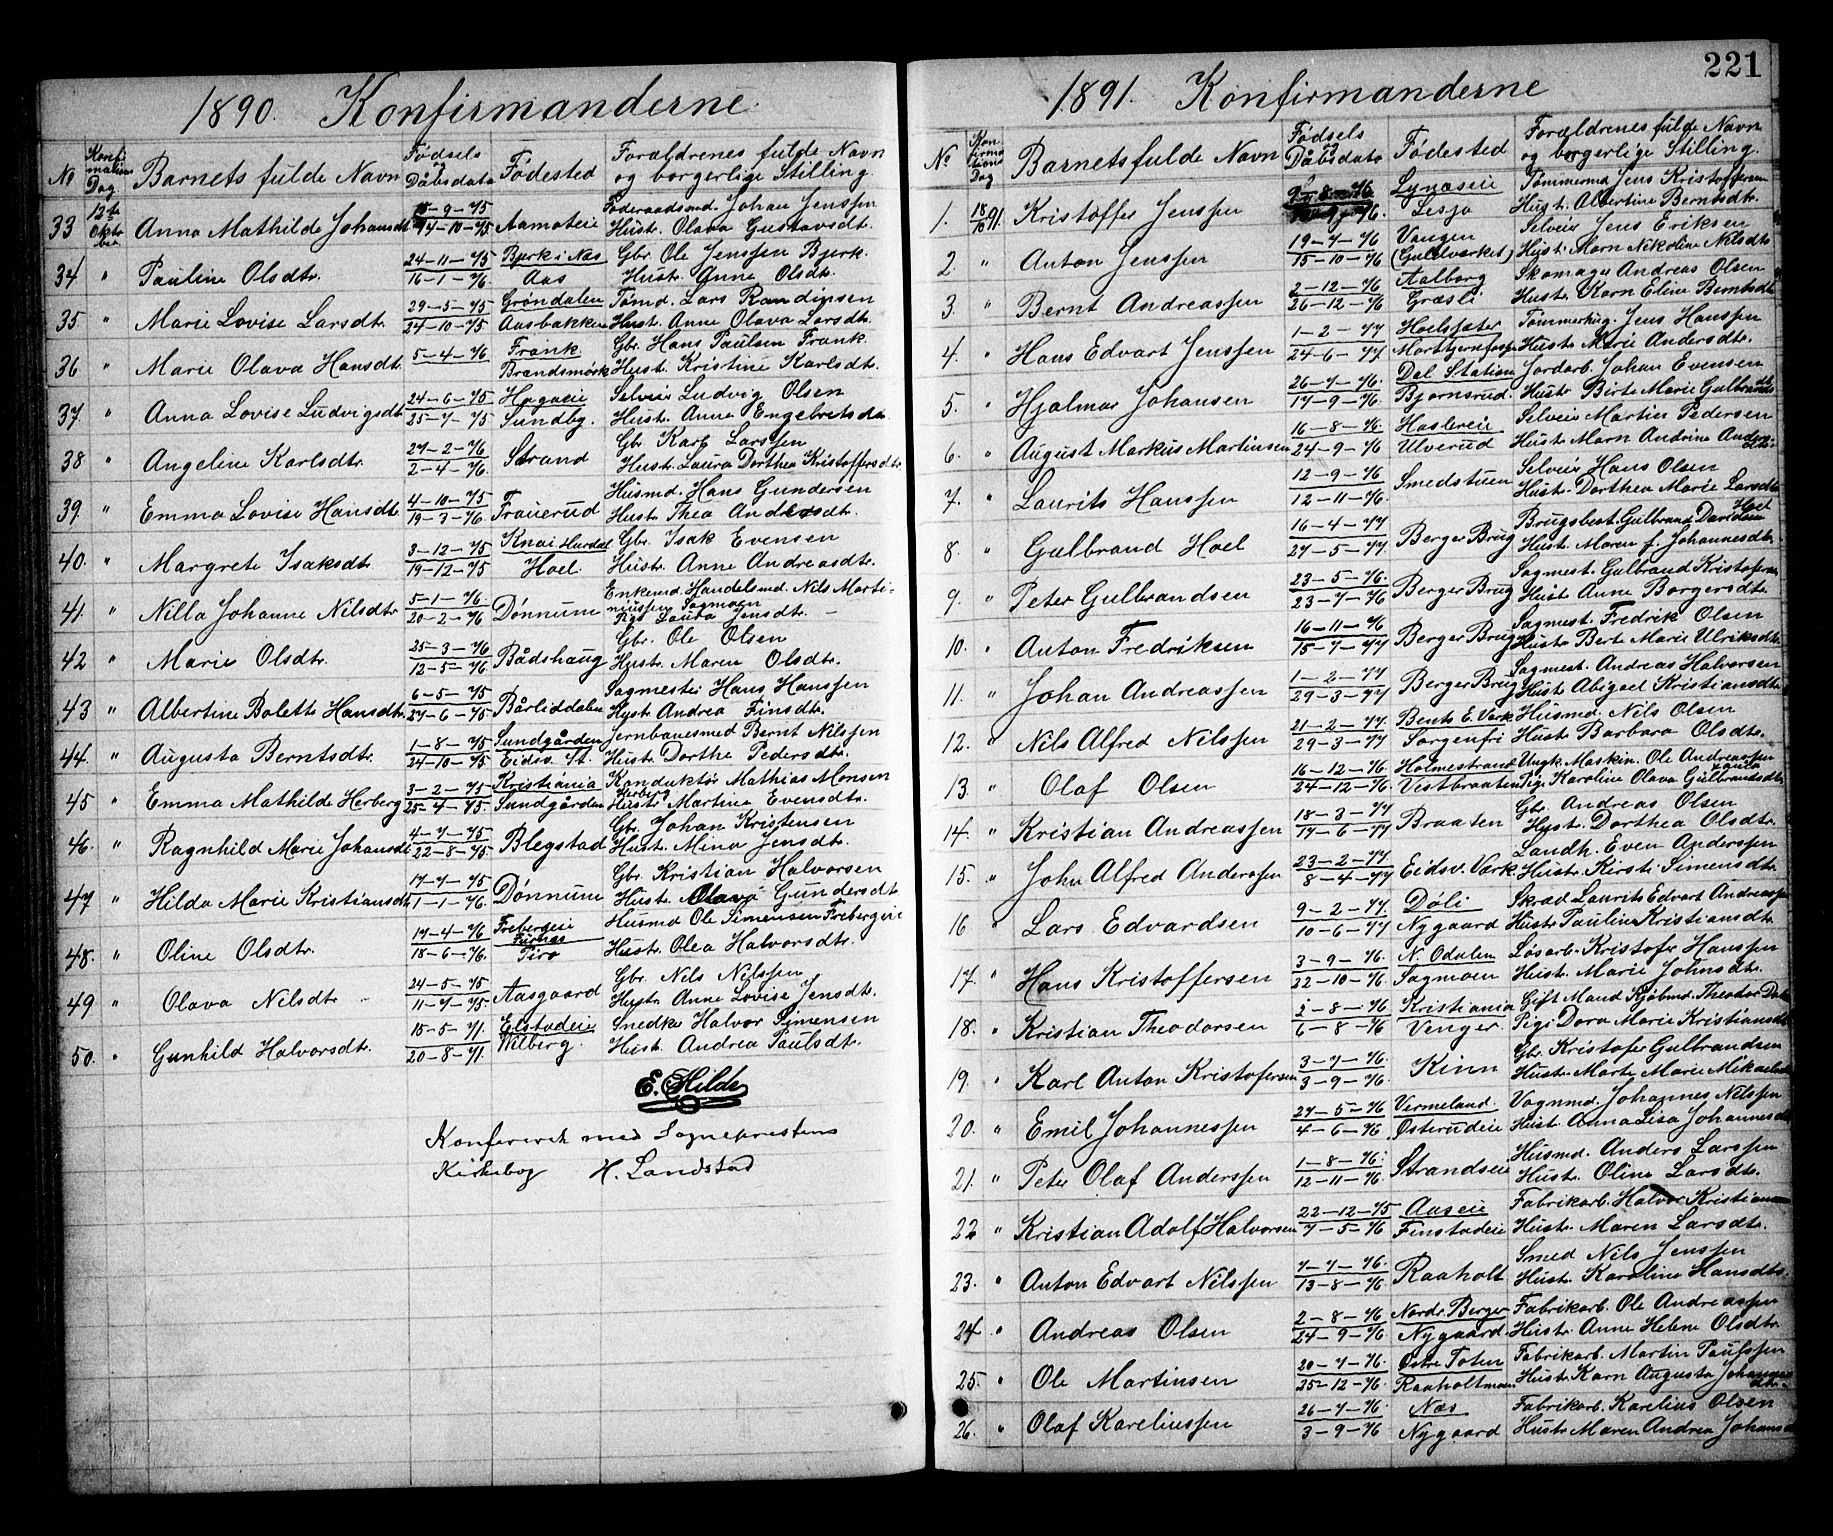 1890. Konfirmanderne.
No Konfirmations Dag Barnets fulde Navn Fødsels og Dåbsdato Fødested Forældrenes fulde Navn og borgerlige Stilling.
33 12te Oktober Anna Mathilde Johansdtr 14-10-75 Aamoteie Føderaadsmd. Johan Jenssen
Hustr. Olava Gustavsdt.
34 " Pauline Olsdtr. 24-11-75 16-1-76 Bjerk i Næs Aas Gbr. Ole Jenssen Bjerk.
Hustr. Anne Olsdt.
35 " Marie Lovise Larsdtr. 29-5-75 24-10-75 Grøndalen Aasbakken Tømd. Lars Randinsen
Hustr. Anne Olava Larsdt.
36 " Marie Olava Hansdtr. 5-4-76 Frank Brandsmørk Gbr. Hans Paulsen Frank.
Hustr. Kristine Karlsdtr.
37. " Anna Lovise Ludvigsdt. 24-6-75 25-7-75 Hagaeie Sundby. Selveier Ludvig Olsen
Hustr. Anne Engebretsdtr.
38 " Angeline Karlsdtr. 27-2-76 2-4-76 Strand Gbr Karl Larssen
Hustr. Laura Dorthea Kristoffersdtr
39. " Emma Lovise Hansdt. 4-10-75 19-3-76 Frauerud Husmd. Hans Gundersen
Hustr. Thea Andersdt.
40. " Margrete Isaksdt. 3-12-75 19-12-75 Knai Hurdal Hoel Gbr. Isak Evensen
Hustr. Anne Andreasdt.
41. " Nilla Johanne Nilsdtr 5-1-76 20-2-76 Dønnum Enkemd. Handelsmd. Nils Martiniussen Sagmoen
Pige Laura Jensdt.
42 " Marie Olsdtr. 25-3-76 12-5-76 Bådshaug Gbr. Ole Olsen
Hustr. Maren Olsdtr.
43 " Albertine Bolette Hansdtr. 6-5-75 27-6-75 Bårliddalen Sagmester Hans Hanssen
Hustr Andrea Finsdtr.
44. " Augusta Berntsdtr. 1-8-75 24-10-75 Sundgården Eidsv. St. Jernbanesmed Bernt Nilssen
Hustr. Dorthe Pedersdtr.
45 " Emma Mathilde Herberg 3-2-75 25-4-75 Kristiania Sundgården Konduktør Mathias Monsen Herberg
Hustr. Martine Evensdtr.
46. " Ragnhild Marie Johansdt. 4-7-75 22-8-75 Blegstad Gbr. Johan Kristensen
Hustr. Mina Jensdt.
47 " Hilda Marie Kristiansdt. 17-7-75 1-1-76 Dønnum Gbr. Kristian Halvorsen
Hustr. Olava Gundersdt.
48. " Oline Olsdtr. 17-4-76 18-6-76 Frebergeie Furnæs Husmd Ole Simensen Frebergeie
Hustr. Olea Halvorsdtr.
49 " Olava Nilsdtr 24-5-75 11-7-75 Aasgaard Gbr. Nils Nilssen
Hustr. Anne Lovise Jensdtr.
50. " Gunhild Halvorsdtr. 15-5-71. 20-8-71. Elstadeie Wilberg. Snedker Halvor Simensen
Hustr. Andrea Paulsdtr.
E. Hilde
Konfereret med Sogneprestens
Kirkebog H. Landstad
221
1891. Konfirmanderne
No Konfirmations Dag Barnets fulde Navn Fødsels og Dåbsdato Fødested Forældrenes fulde Navn og borgerlige Stilling.
1. 18/10 91. Kristoffer Jenssen Lynæseie Lesja Tømmermd Jens Kristoffersen
Hustr. Albertine Berntsdt.
2. " Anton Jenssen 19-7-76 15-10-76 Vangen (Guldverket) Selveier Jens Eriksen
Hustr. Marn Nikoline Nilsdt.
3. " Bernt Andreassen 2-12-76 26-12-76 Aalborg Græsli Skomager Andreas Olsen
Hustr. Karn Eline Berntsdt.
4. " Hans Edvart Jenssen 1-2-77 24-6-77 Hoelsfæter Tømmerhug. Jens Hanssen
Hustr. Marie Andersdtr.
5. " Hjalmar Johansen 26-7-76. 17-9-76. Dal Station Bjørnsrud. Jordarb. Johan Evensen
Hustr Birte Marie Gulbrandsdt.
6. " August Markus Martinsen 16-8-76. 24-9-76 Haslereie Ulverud Selveier Martin Pedersen
Hustr. Marn Andrine Andersdtr.
7. " Laurits Hanssen 12-9-76 12-11-76. Smedstuen Selveier Hans Olsen
Hustr. Dorthea Marie Larsdtr
8. " Gulbrand Hoel 16-4-77 27-5-77. Berger Brug Brugsbest. Gulbrand Davidsen Hoel
Hustr. Maren f. Johannesdtr.
9. " Peter Gulbrandsen 23-5-76. 23-7-76 Berger Brug Sagmest. Gulbrand Kristofersen
Hustr. Anne Borgersdtr.
10. " Anton Fredriksen 16-11-76 15-7-77 Berger Brug Sagmest. Fredrik Olsen
Hustr Bert Marie Ulriksdt.
11. " Johan Andreassen 1-2-77 29-3-77 Berger Brug Sagmest. Andreas Halvorsen
Hustr. Abigael Kristiansdt.
12. " Nils Alfred Nilssen 21-2-77. 29-3-77 Bents E. Værk Sorgenfri Husmd. Nils Olsen
Hustr. Barbara Olsdtr.
13. " Olaf Olsen 16-12-76 24-12-76 Holmestrand Vestbraaten Ungk. Maskin. Ole Andreassen
Pige Karoline Olava Gulbrandsdtr
14. " Kristian Andreassen 18-3-77 17-6-77 Braaten Gbr. Andreas Olsen
Hustr. Dorthea Olsdtr.
15. " John Alfred Anderssen 23-2-77 8-4-77 Eidsv. Værk Landh. Even Anderssen
Hustr. Kirsti Simensdtr.
16 " Lars Edvardsen 9-2-77 10-6-77 Døli Nygaard Skræd Laurits Edvart Andreassen
Hustr Pauline Kristiansdtr.
17. " Hans Kristoffersen 3-9-76. 22-10-76. N. Odalen Sagmoen Løsarb. Kristofer Hanssen
Hustr. Marie Johnsdtr.
18. " Kristian Theodorsen 2-8-76 6-8-76 Kristiania Venger. Gift Mand Kjøbmd. Theodor
Pige Dora Marie Kristiansdt.
19. " Karl Anton Kristofersen 3-7-76. 3-9-76. Kinn Gbr. Kristofer Gulbrandsen
Hustr. Marte Marie Mikaelsdt
20. " Emil Johannessen 27-5-76 4-6-76 Vermeland. Østerudeie Vognmd. Johannes Nilssen
Hustr. Anna Lisa Johannesdt
21. " Peter Olaf Anderssen 1-8-76. 12-11-76. Strandseie Husmd. Anders Larssen
Hustr. Oline Larsdtr.
22 " Kristian Adolf Halvorsen 22-12-75 7-5-76 Aaseie Finstadeie Fabrikarb. Halvor Kristiansen
Hustr. Maren Larsdtr.
23. " Anton Edvart Nilssen 7-7-76. 13-8-76 Raaholt Smed Nils Jenssen
Hustr. Karoline Hansdtr.
24 " Andreas Olsen 2-8-76 24-9-76 Nordr. Berger Nygaard Fabrikarb. Ole Andreassen
Hustr. Anne Helene Olsdtr
25. " Ole Martinsen 20-7-76. 25-12-76. Østre Toten Raaholtmoen Fabrikarb. Martin Paulssen
Hustr. Karn Augusta Johannesdtr.
26. " Olaf Kareliussen 26-7-76. 3-9-76. Næs Nygaard Fabrikarb. Karelius Olsen
Hustr Maren Andrea Johansdt